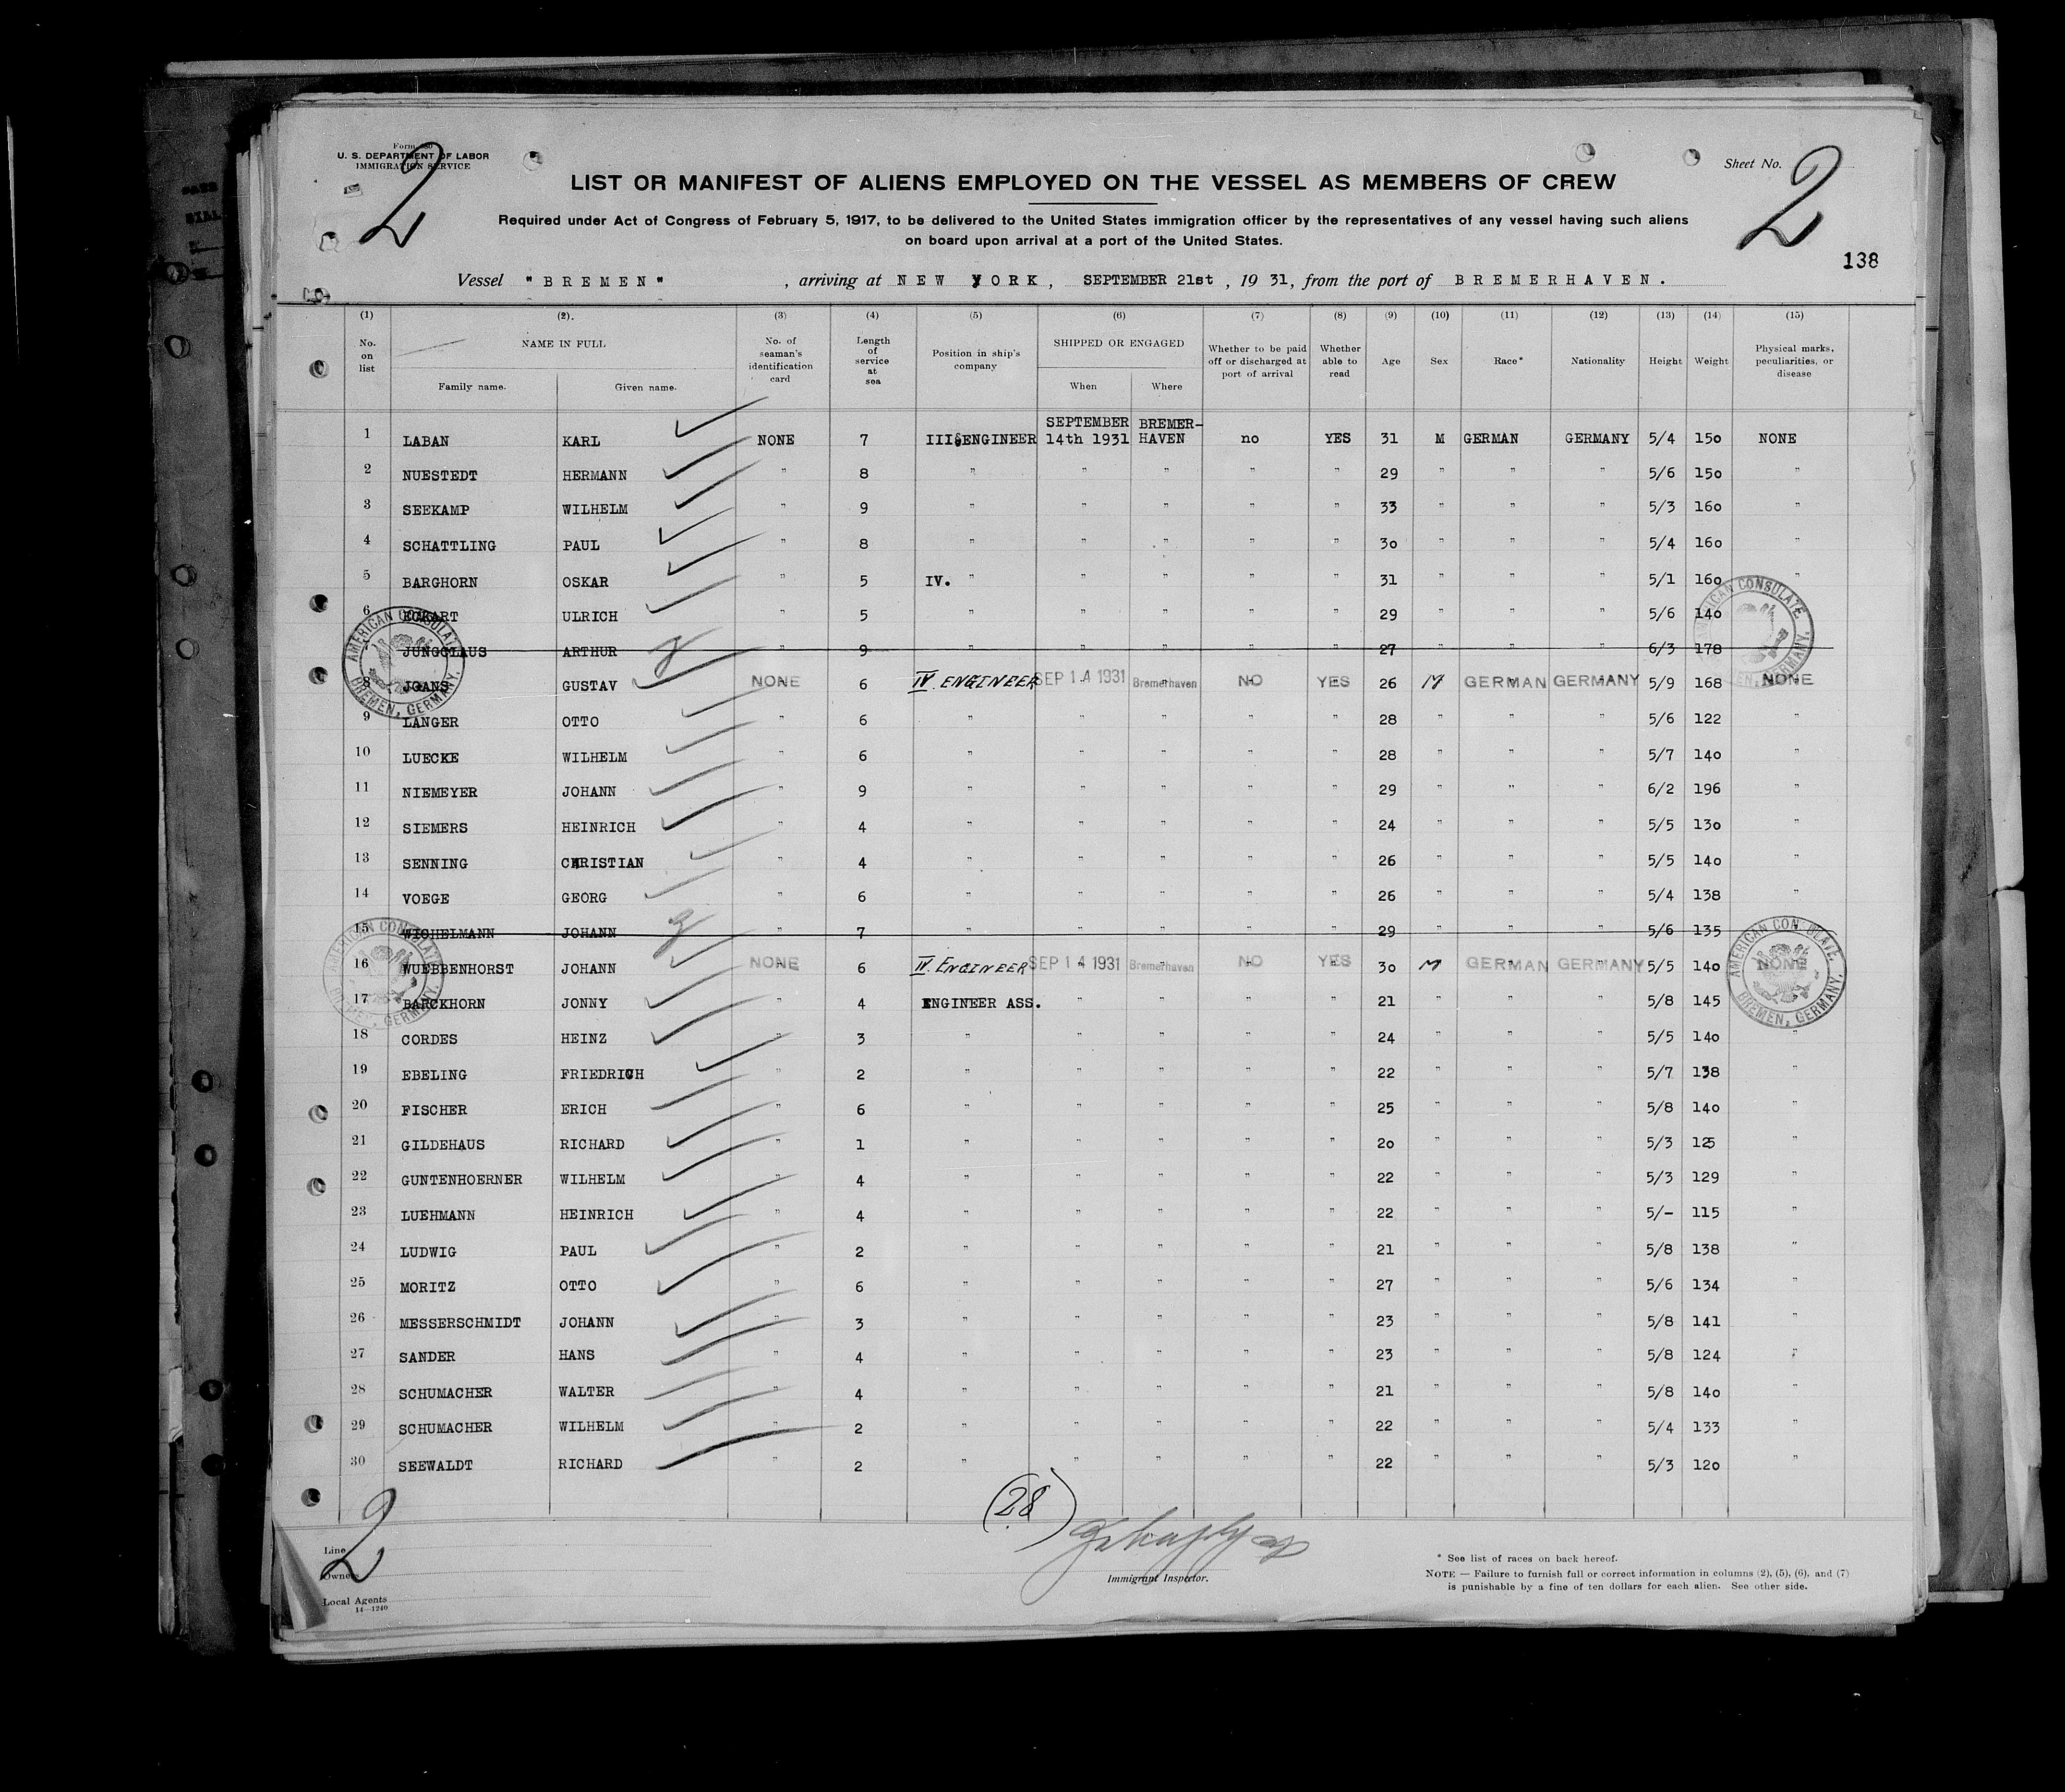 Form 680
U. S. DEPARTMENT OF LABOR
IMMIGRATION SERVICE
2
Sheet No. 2
LIST OR MANIFEST OF ALIENS EMPLOYED ON THE VESSEL AS MEMBERS OF CREW
Required under Act of Congress of February 5, 1917, to be delivered to the United States immigration officer by the representatives of any vessel having such aliens
on board upon arrival at a port of the United States.
138
Vessel "BREMEN", arriving at NEW YORK, SEPTEMBER 21st, 1931, from the port of BREMERHAVEN.
(1) (2). (3) (4) (5) (6) (7) (8) (9) (10) (11) (12) (13) (14) (15)
No. on list NAME IN FULL Family name. Given name. No. of seaman's identification card Length of service at sea Position in ship's company SHIPPED OR ENGAGED When Where Whether to be paid off or discharged at port of arrival Whether able to read Age Sex Race* Nationality Height Weight Physical marks, peculiarities, or disease
1 LABAN KARL NONE 7 III.ENGINEER SEPTEMBER 14th 1931 BREMER-HAVEN no YES 31 M GERMAN GERMANY 5/4 150 NONE
2 NUESTEDT HERMANN " 8 " " " " " 29 " " " 5/6 150 "
3 SEEKAMP WILHELM " 9 " " " " " 33 " " " 5/3 160 "
4 SCHATTLING PAUL " 8 " " " " " 30 " " " 5/4 160 "
5 BARGHORN OSKAR " 5 IV. " " " " " 31 " " " 5/1 160 "
6 ECKART ULRICH " 5 " " " " " 29 " " " 5/6 140
JUNGCLAUS ARTHUR " 9 " " " " " 27 " " " 6/3 178
8 JOANS GUSTAV NONE 6 IV. ENGINEER SEP 14 1931 Bremerhaven NO YES 26 M GERMAN GERMANY 5/9 168 NONE
9 LANGER OTTO " 6 " " " " " 28 " " " 5/6 122 "
10 LUECKE WILHELM " 6 " " " " " 28 " " " 5/7 140 "
11 NIEMEYER JOHANN " 9 " " " " " 29 " " " 6/2 196 "
12 SIEMERS HEINRICH " 4 " " " " " 24 " " " 5/5 130 "
13 SENNING CHRISTIAN " 4 " " " " " 26 " " " 5/5 140 "
14 VOEGE GEORG " 6 " " " " " 26 " " " 5/4 138 "
15 WICHELMANN JOHANN " 7 " " " " " 29 " " " 5/6 135
16 WUEBBENHORST JOHANN NONE 6 IV. ENGINEER SEP 14 1931 Bremerhaven NO YES 30 M GERMAN GERMANY 5/5 140 NONE
17 BARCKHORN JONNY " 4 ENGINEER ASS. " " " " 21 " " " 5/8 145
18 CORDES HEINZ " 3 " " " " " 24 " " " 5/5 140 "
19 EBELING FRIEDRICH " 2 " " " " " 22 " " " 5/7 138 "
20 FISCHER ERICH " 6 " " " " " 25 " " " 5/8 140 "
21 GILDEHAUS RICHARD " 1 " " " " " 20 " " " 5/3 125 "
22 GUNTENHOERNER WILHELM " 4 " " " " " 22 " " " 5/3 129 "
23 LUEHMANN HEINRICH " 4 " " " " " 22 " " " 5/- 115 "
24 LUDWIG PAUL " 2 " " " " " 21 " " " 5/8 138 "
25 MORITZ OTTO " 6 " " " " " 27 " " " 5/6 134 "
26 MESSERSCHMIDT JOHANN " 3 " " " " " 23 " " " 5/8 141 "
27 SANDER HANS " 4 " " " " " 23 " " " 5/8 124 "
28 SCHUMACHER WALTER " 4 " " " " " 21 " " " 5/8 140 "
29 SCHUMACHER WILHELM " 2 " " " " " 22 " " " 5/4 133 "
30 SEEWALDT RICHARD " 2 " " " " " 22 " " " 5/3 120 "
AMERICAN CONSULATE BREMEN, GERMANY.
AMERICAN CONSULATE BREMEN, GERMANY.
AMERICAN CONSULATE BREMEN, GERMANY.
AMERICAN CONSULATE BREMEN, GERMANY.
(28)
2
Line
Owners
Local Agents
14—1240
Immigrant Inspector.
* See list of races on back hereof.
NOTE — Failure to furnish full or correct information in columns (2), (5), (6), and (7)
is punishable by a fine of ten dollars for each alien. See other side.